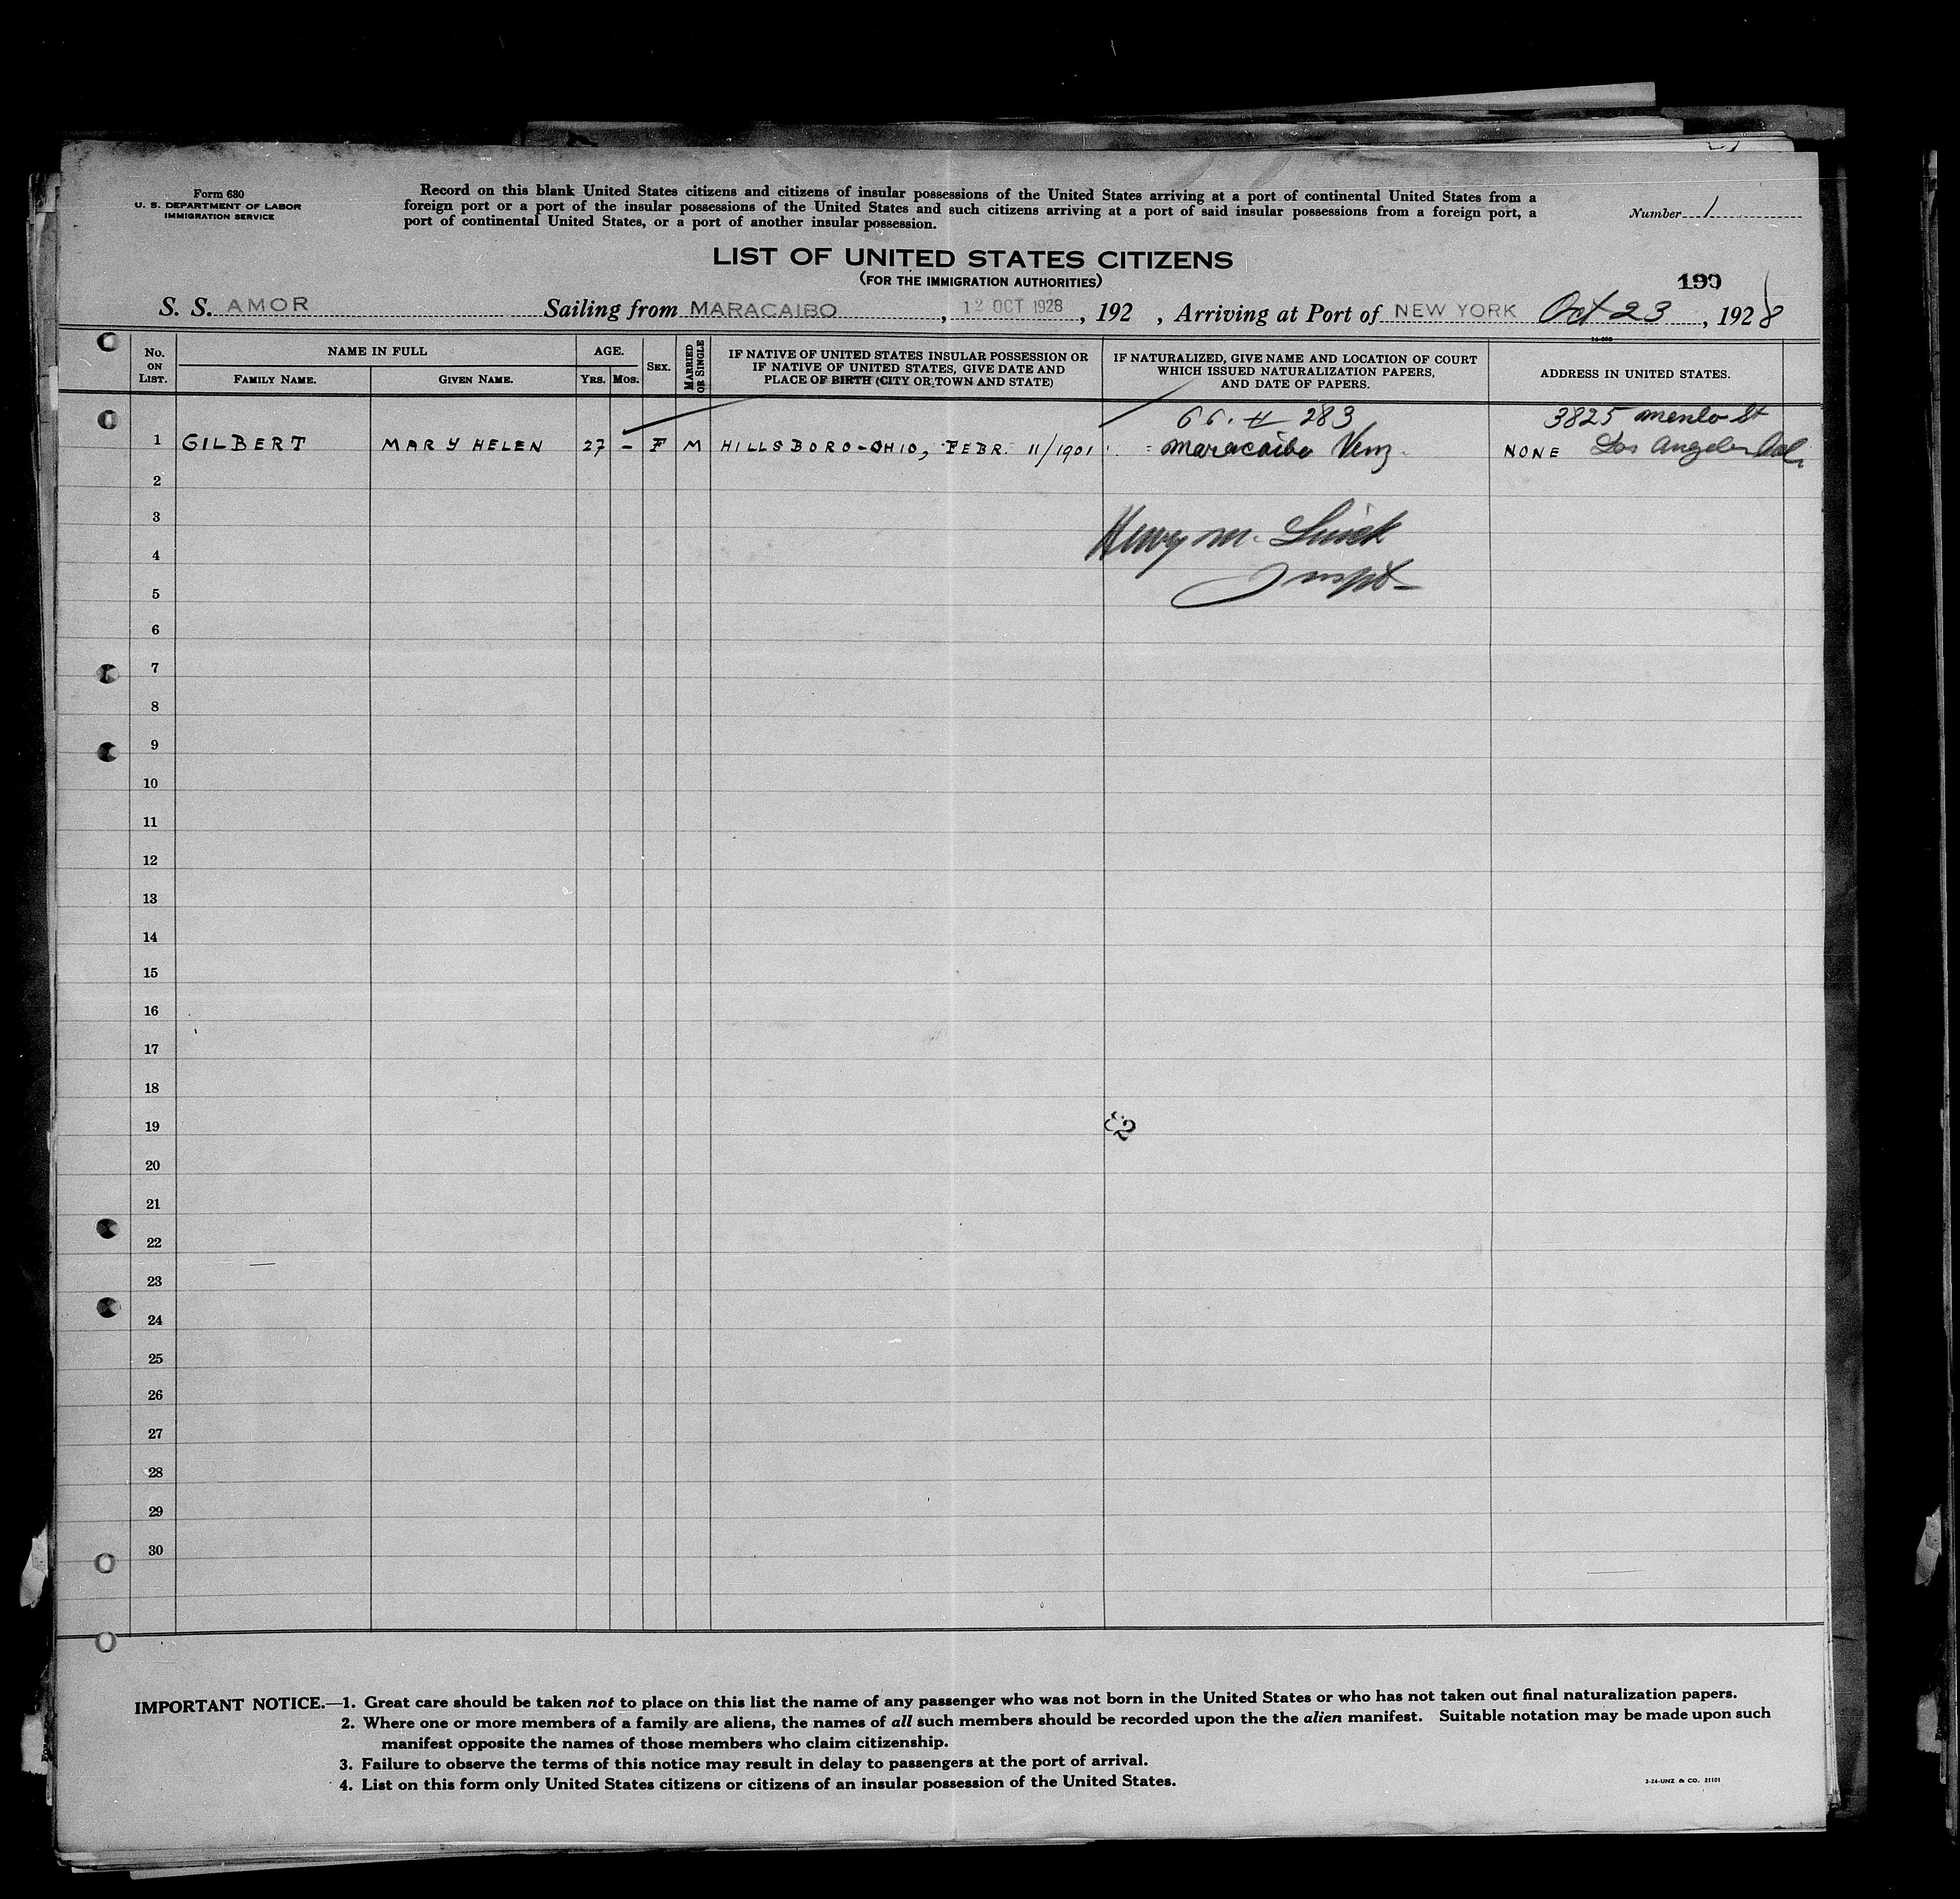 Form 630
U. S. DEPARTMENT OF LABOR
IMMIGRATION SERVICE
Record on this blank United States citizens and citizens of insular possessions of the United States arriving at a port of continental United States from a
foreign port or a port of the insular possessions of the United States and such citizens arriving at a port of said insular possessions from a foreign port, a
port of continental United States, or a port of another insular possession.
Number 1
LIST OF UNITED STATES CITIZENS
(FOR THE IMMIGRATION AUTHORITIES)
190
S. S. AMOR Sailing from MARACAIBO, 12 OCT 1928, 192 , Arriving at Port of NEW YORK Oct 23, 1928
No. ON LIST.
NAME IN FULL
FAMILY NAME.
GIVEN NAME.
AGE.
YRS.
MOS.
SEX.
MARRIED OR SINGLE
IF NATIVE OF UNITED STATES INSULAR POSSESSION OR
IF NATIVE OF UNITED STATES, GIVE DATE AND
PLACE OF BIRTH (CITY OR TOWN AND STATE)
IF NATURALIZED, GIVE NAME AND LOCATION OF COURT
WHICH ISSUED NATURALIZATION PAPERS,
AND DATE OF PAPERS.
ADDRESS IN UNITED STATES.
283
3825 Menlo St
1 GILBERT MARY HELEN 27 - F M HILLSBORO-OHIO, FEBR. 11/1901 Maracaibo Venz. NONE Los Angeles Cal.
2
3
Henry M.
4
Inspt
5
6
7
8
9
10
11
12
13
14
15
16
17
18
19
20
21
22
23
24
25
26
27
28
29
30
IMPORTANT NOTICE.—1. Great care should be taken not to place on this list the name of any passenger who was not born in the United States or who has not taken out final naturalization papers.
2. Where one or more members of a family are aliens, the names of all such members should be recorded upon the the alien manifest. Suitable notation may be made upon such
manifest opposite the names of those members who claim citizenship.
3. Failure to observe the terms of this notice may result in delay to passengers at the port of arrival.
4. List on this form only United States citizens or citizens of an insular possession of the United States.
3-24-UNZ & CO. 21101